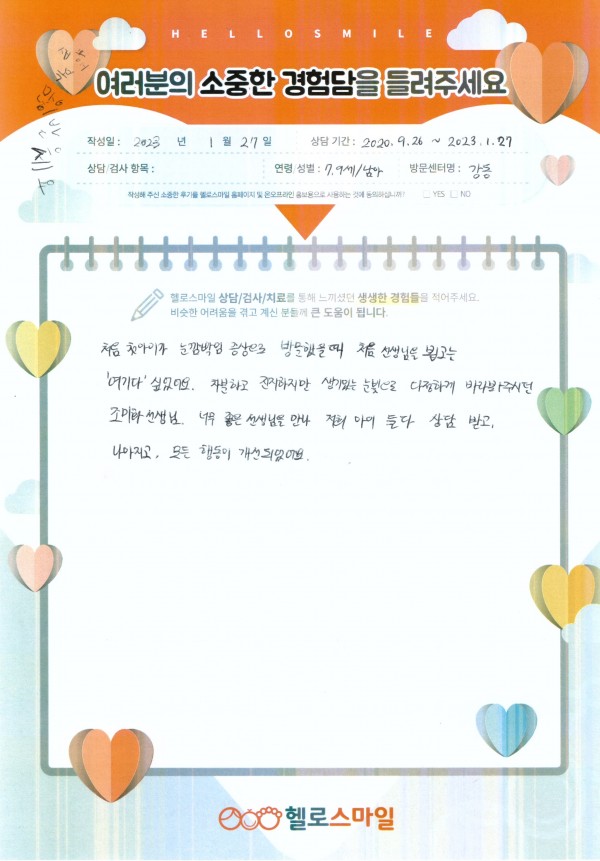 HELLOSMILE
여러분의 소중한 경험담을 들려주세요
작성일 : 2023 년 1 월 27 일 상담 기간 : 2020. 9. 26 ~ 2023. 1. 27
상담/검사 항목 : 연령/성별 : 7, 9세/남아 방문센터명 : 강동
작성해 주신 소중한 후기를 헬로스마일 홈페이지 및 온오프라인 홍보용으로 사용하는 것에 동의하십니까? YES NO
헬로스마일 상담/검사/치료를 통해 느끼셨던 생생한 경험들을 적어주세요.
비슷한 어려움을 겪고 계신 분들께 큰 도움이 됩니다.
처음 첫아이가 눈깜박임 증상으로 방문했을때 처음 선생님을 뵙고는
'여기다' 싶었어요. 차분하고 진지하지만 생기있는 눈빛으로 다정하게 바라봐주시던
조미화 선생님. 너무 좋은 선생님을 만나 저희 아이 둘다 상담 받고,
나아지고, 모든 행동이 개선되었어요.
헬로스마일